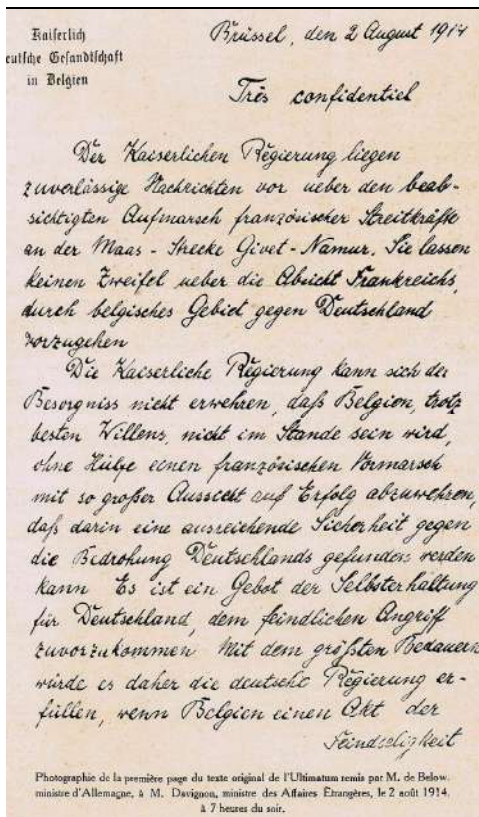 Kaiserlich
eutsche Gesandtschaft
in Belgien
Brüssel, den 2 August 1914
Très confidentiel
Der Kaiserlichen Regierung liegen
zuverlässige Nachrichten vor ueber den beab-
sichtigten Aufmarsch französischer Streitkräfte
an der Maas - Strecke Givet - Namur. Sie lassen
keinen Zweifel ueber die Absicht Frankreichs,
durch belgisches Gebiet gegen Deutschland
vorzugehen
Die Kaiserliche Regierung kann sich der
Besorgniss nicht erwehren, daß Belgien, trotz
besten Willens, nicht im Stande sein wird,
ohne Hülfe einen französischen Vormarsch
mit so großer Aussicht auf Erfolg abzuwehren,
daß darin eine ausreichende Sicherheit gegen
die Bedrohung Deutschlands gefunden werden
kann Es ist ein Gebot der Selbsterhaltung
für Deutschland, dem feindlichen Angriff
zuvorzukommen Mit dem größten Bedauern
würde es daher die deutsche Regierung er-
füllen, wenn Belgien einen Akt der
Feindseligkeit
Photographie de la première page du texte original de l'Ultimatum remis par M. de Below,
ministre d'Allemagne, à M. Davignon, ministre des Affaires Étrangères, le 2 août 1914,
à 7 heures du soir.